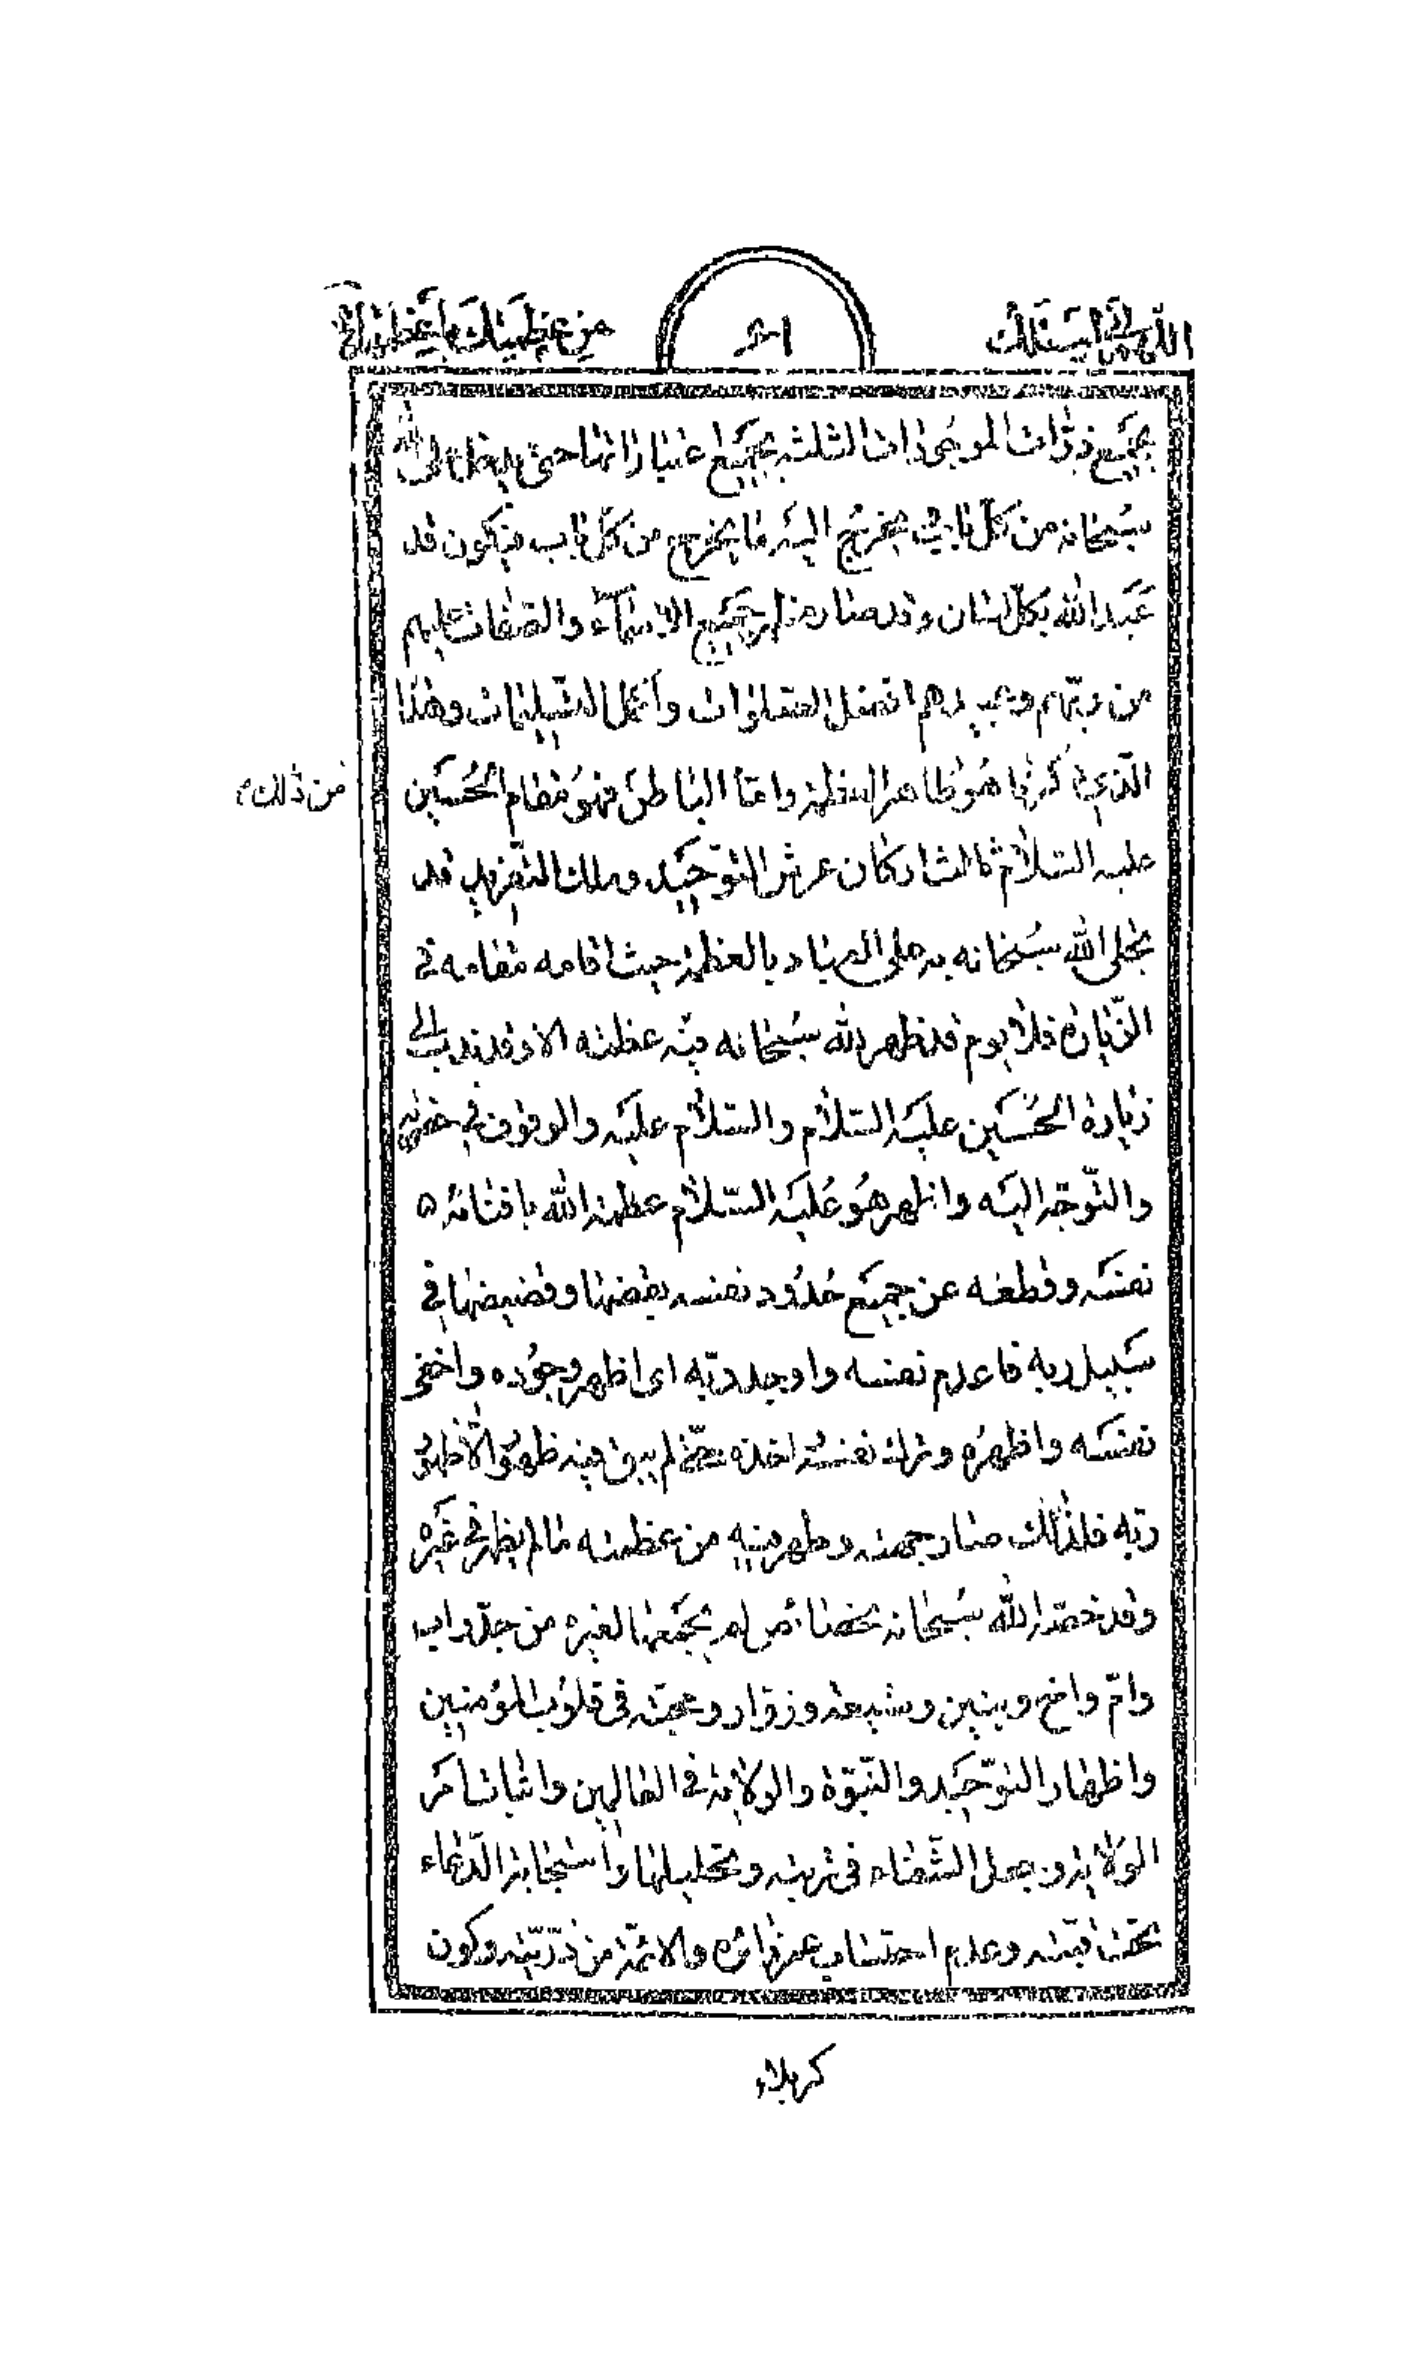 اللّهمّ انّي اسئلك
من عظمتك باعظمها
بجميع ذرّات الموجودات الثلثة بجميع اعتباراتها حتى يدخل الى الله
سبحانه من كلّ باب يخرج اليه ما يخرج من كلّ باب فيكون قد
عبد الله بكلّ لسان وقد صار مظهر جميع الاسمآء والصّفات عليهم
من ربّهم وعبيدهم افضل الصّلوات وأكمل التّسليمات وهذا
الّذي ذكرنا هو ظاهر العظمة وامّا الباطن فهو مقام الحسين
من ذلك
عليه السّلام ثالث اركان عرش التّوحيد وملك التّفريد قد
تجلى الله سبحانه به على العباد بالعظمة حيث اقامه مقامه في
الزّيارة فلا يوم قد ظهر لله سبحانه فيه عظمته الا وقد ندب الى
زيارة الحسين عليه السّلام والسّلام عليه والوقوف في حضرته
والتّوجّه اليه واظهر هو عليه السّلام عظمة الله بافنائه
نفسه وقطعه عن جميع حدود نفسه بقضها وقضيضها في
سبيل ربه فاعدم نفسه واوجد ربّه اى اظهر وجوده واخفى
نفسه واظهره وترك نفسه اخذه حتى لم يبق فيه ظهور الّا ظهور
ربّه فلذلك صار جهته وظهر فيه من عظمته ما لم يظهر في غيره
وقد خصّه الله سبحانه بخصائص لم يجمعها لغيره من جدّ واب
وامّ واخ وبنين وشيعة وزوّار ومحبّة في قلوب المؤمنين
واظهار التّوحيد والنّبوّة والولاية في العالمين واثبات امر
الولاية وجعل الشّفاء في تربته وتحليلها واستجابة الدّعاء
تحت قبّته وعدم احتساب عمر زوائره والائمّة من ذرّيّته وكون
كربلاء